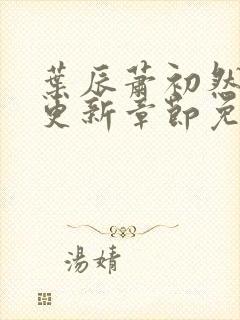 葉辰蕭初然
更新章節免
湯婧